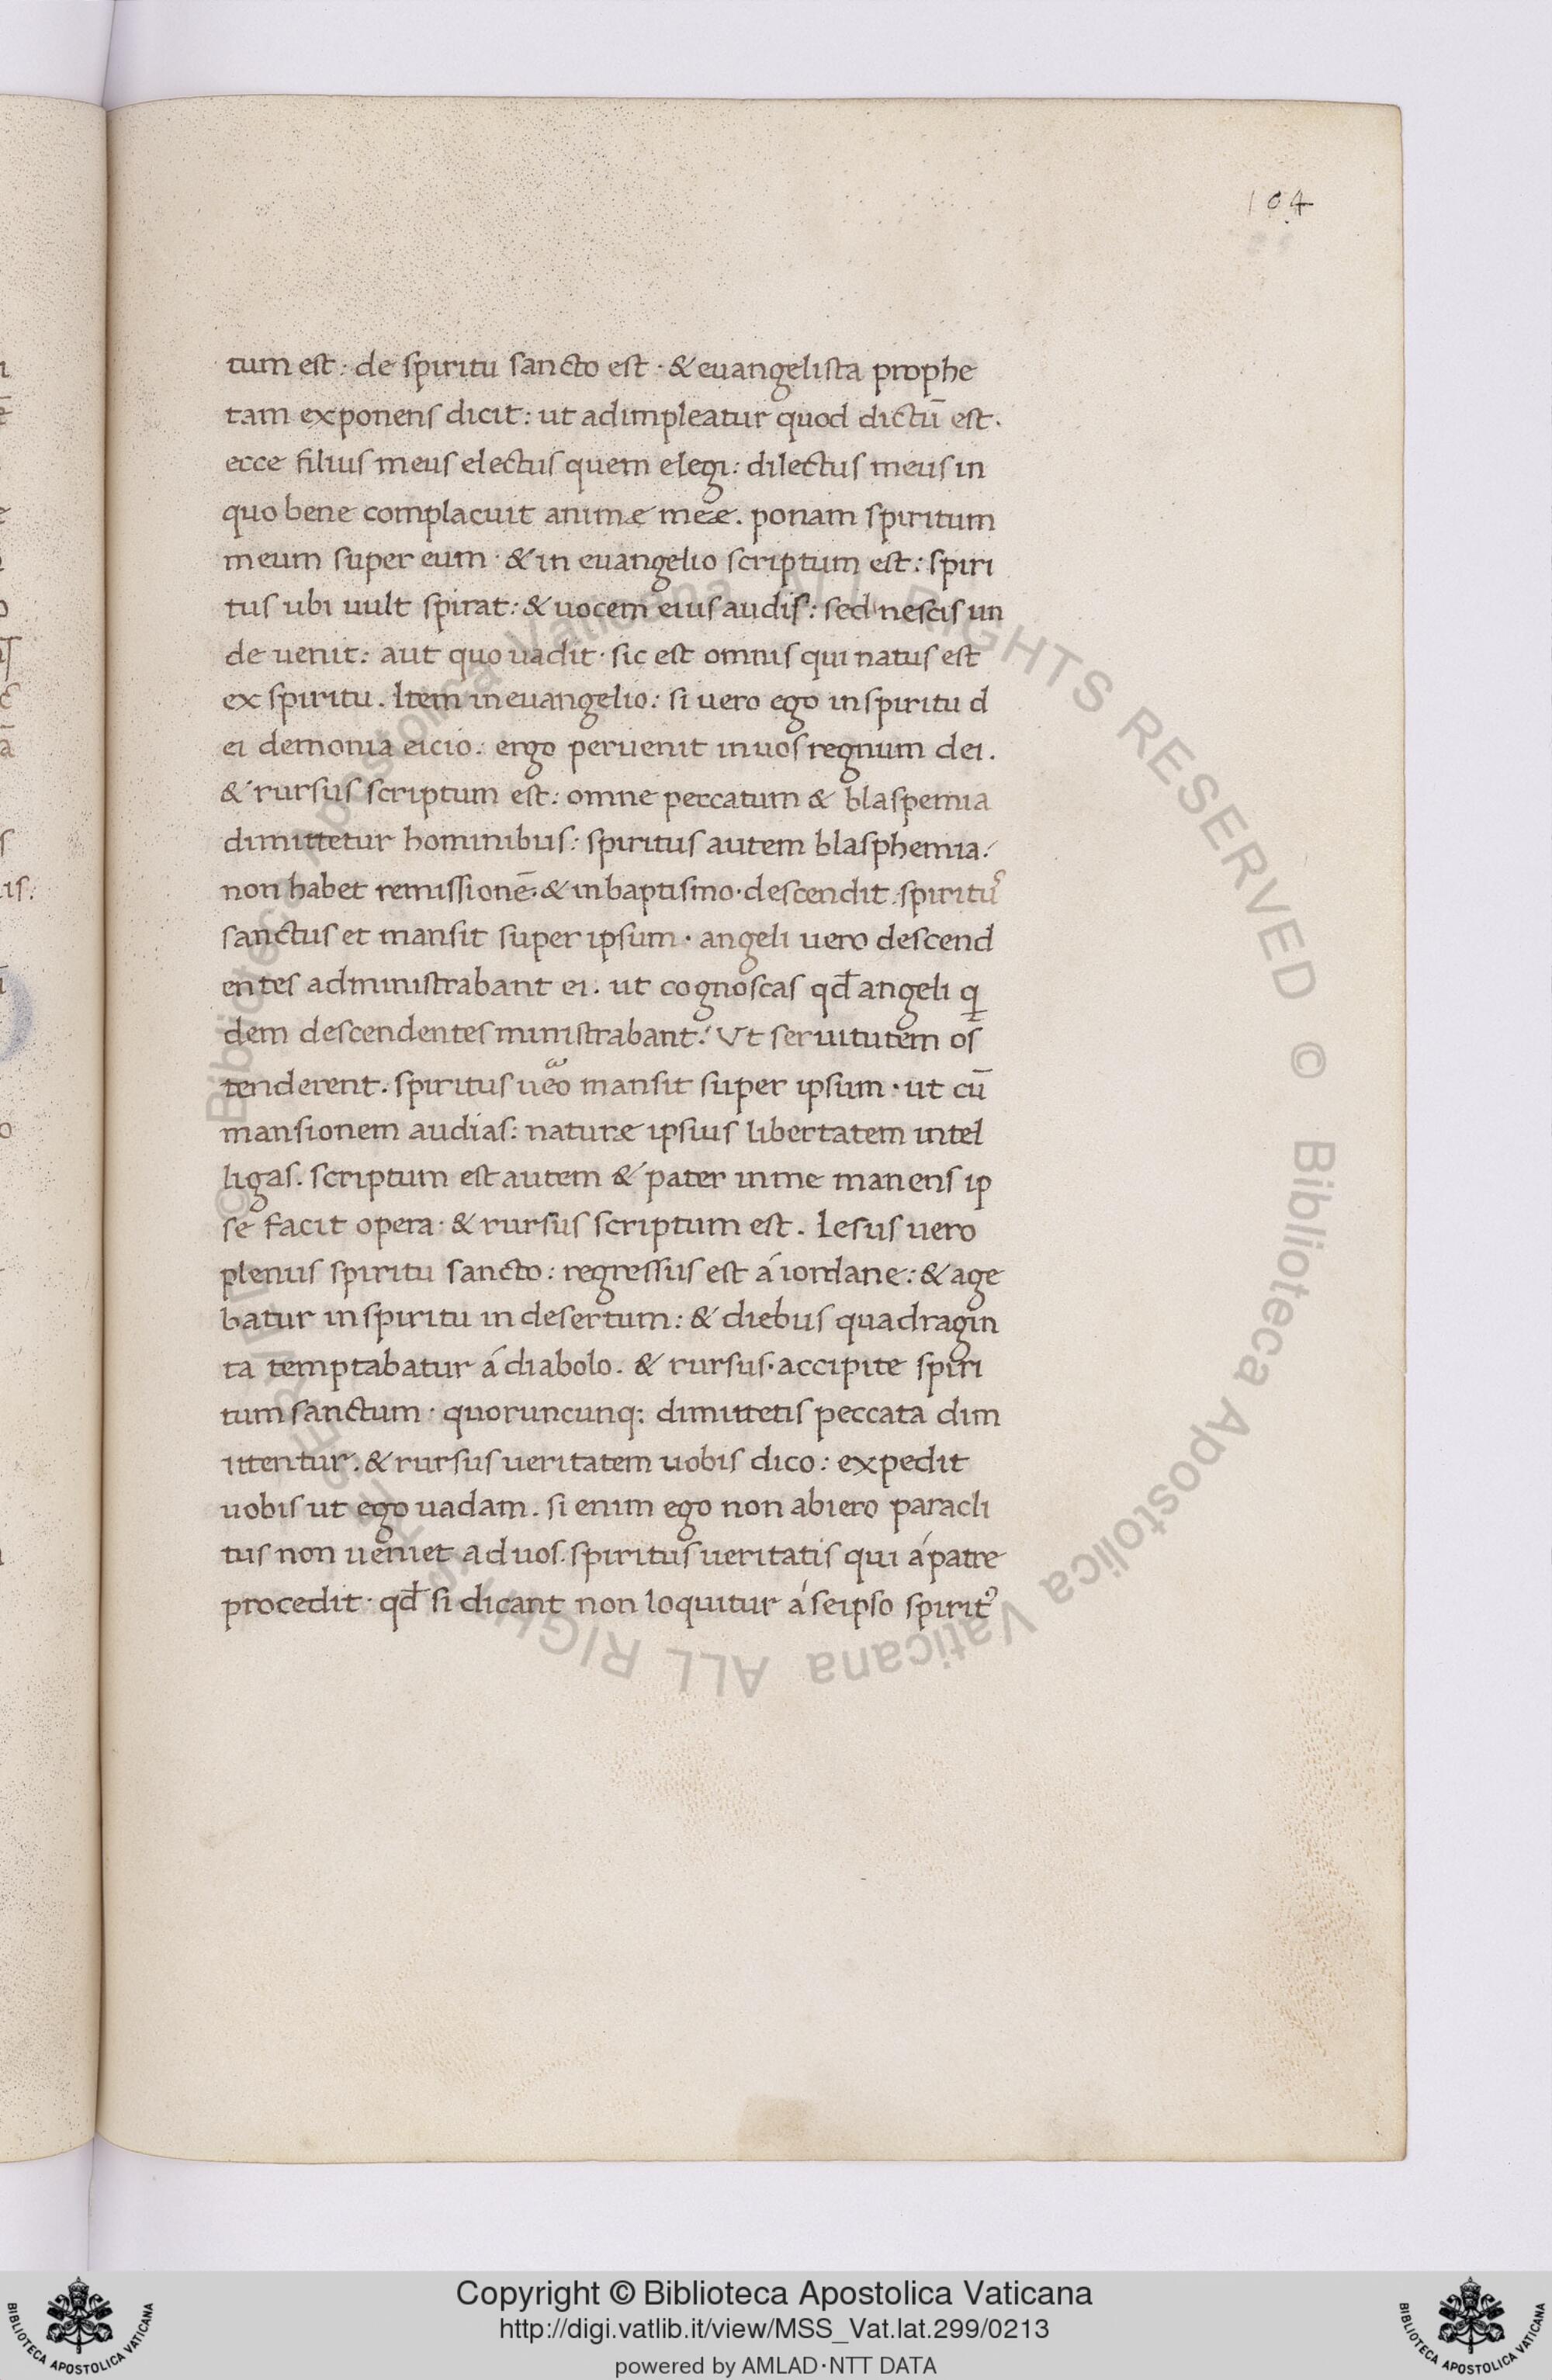 104
tum est: de spiritu sancto est· & euangelista prophe
tam exponens dicit: ut adimpleatur quod dictū est.
ecce filius meus electus quem elegi: dilectus meus in
quo bene complacuit animæ meæ. ponam spiritum
meum super eum· & in euangelio scriptum est: spiri
tus ubi uult spirat: & uocem eius audis: sed nescis un
de uenit: aut quo uadit· sic est omnis qui natus est
ex spiritu. Item in euangelio: si uero ego in spiritu d
ei demonia eicio: ergo peruenit in uos regnum dei.
& rursus scriptum est: omne peccatum & blaspemia
dimittetur hominibus: spiritus autem blasphemia:
non habet remissionē· & in baptismo· descendit spiritu᾽
sanctus et mansit super ipsum· angeli uero descend
entes administrabant ei. ut cognoscas qd̄ angeli q
dem descendentes ministrabant: Vt seruitutem os
tenderent. spiritus ueo mansit super ipsum· ut cū
mansionem audias: naturæ ipsius libertatem intel
ligas. scriptum est autem & pater in me manens ip
se facit opera· & rursus scriptum est. Iesus uero
plenus spiritu sancto: regressus est á iordane: & age
batur in spiritu in desertum: & diebus quadragin
ta temptabatur á diabolo. & rursus· accipite spiri
tum sanctum· quoruncunq; dimittetis peccata dim
ittentur. & rursus ueritatem uobis dico: expedit
uobis ut ego uadam. si enim ego non abiero paracli
tus non ueniet ad uos. spiritus ueritatis qui á patre
procedit· qd̄ si dicant non loquitur á seipso spirit᾽
© Biblioteca Apostolica Vaticana ALL RIGHTS RESERVED © Biblioteca Apostolica Vaticana ALL RIGHTS RESERVED
BIBLIOTECA APOSTOLICA VATICANA
Copyright © Biblioteca Apostolica Vaticana
http://digi.vatlib.it/view/MSS_Vat.lat.299/0213
powered by AMLAD·NTT DATA
BIBLIOTECA APOSTOLICA VATICANA